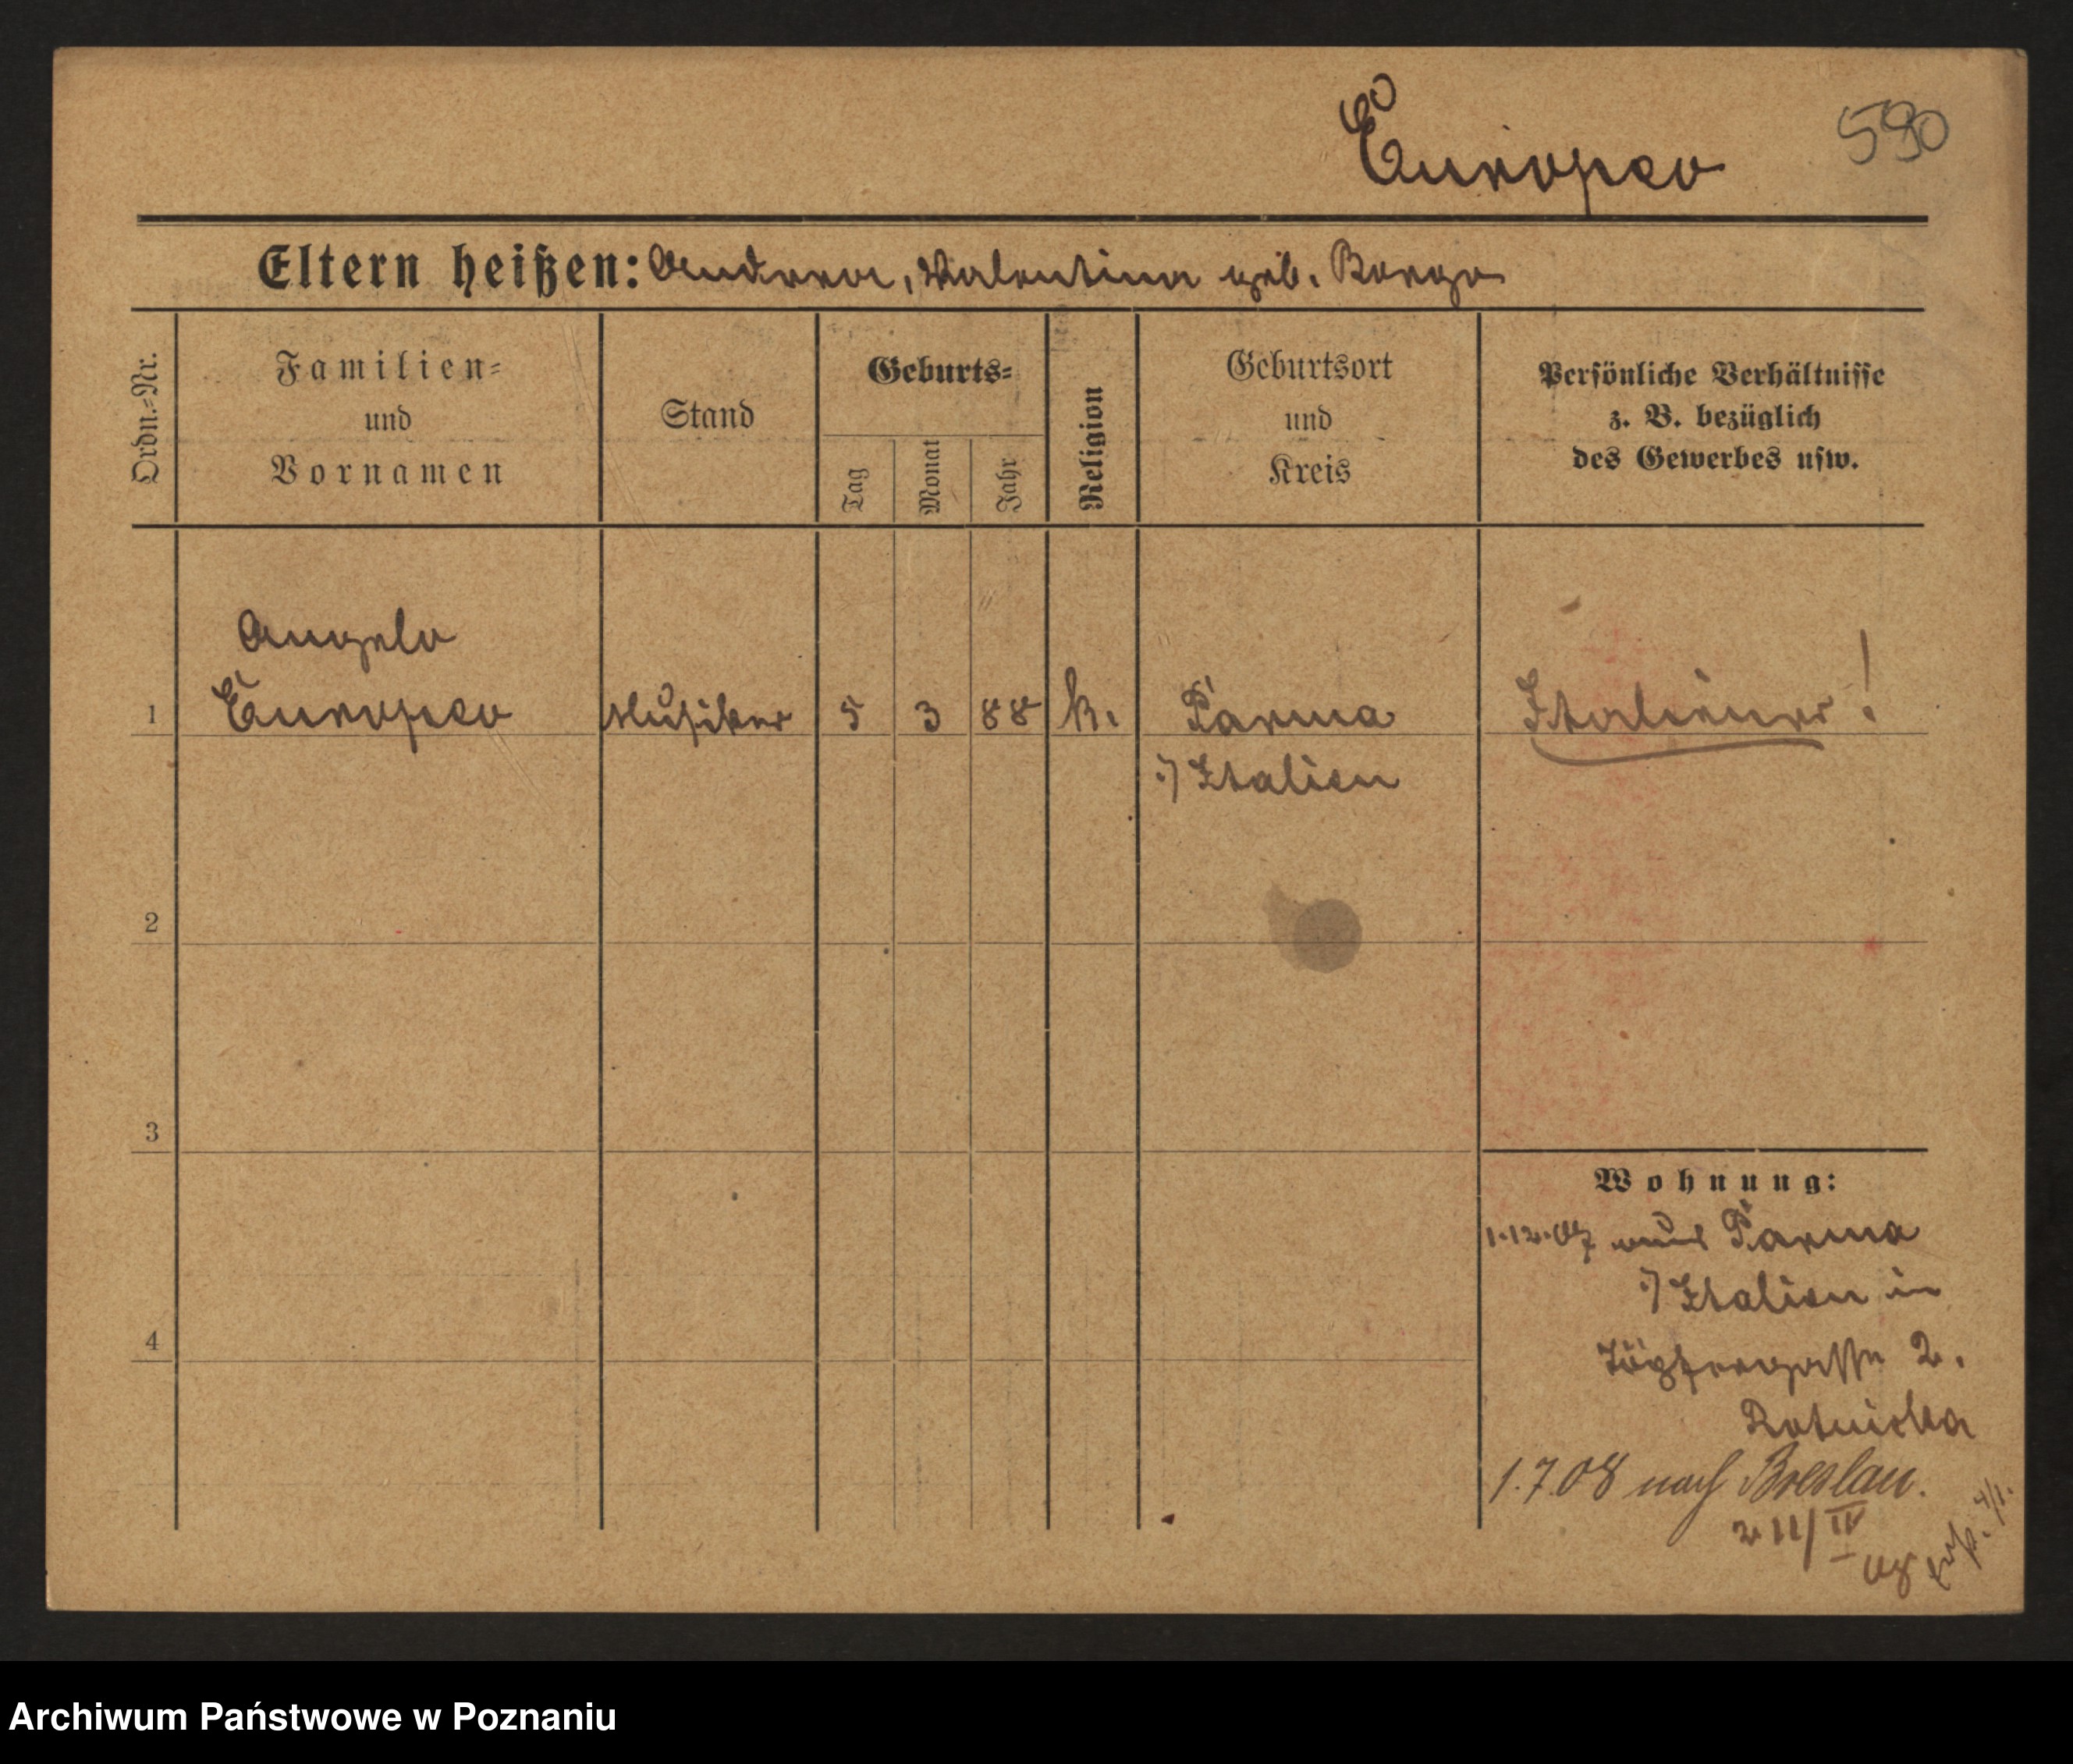 Europeo
590
Eltern heißen: Andrea, Valentina geb. Borgo
Ordn.-Nr.
Familien-
und
Vornamen
Stand
Geburts-
Tag
Monat
Jahr
Religion
Geburtsort
und
Kreis
Persönliche Verhältnisse
z. B. bezüglich
des Gewerbes usw.
Angelo
1 Europeo Musiker 5 3 88 k. Parma Italiener!
:/ Italien
2
3
4
Wohnung:
1.12.07 aus Parma
:/ Italien in
2.
Ratnicka
1.7.08 nach Breslau.
211/IV
08